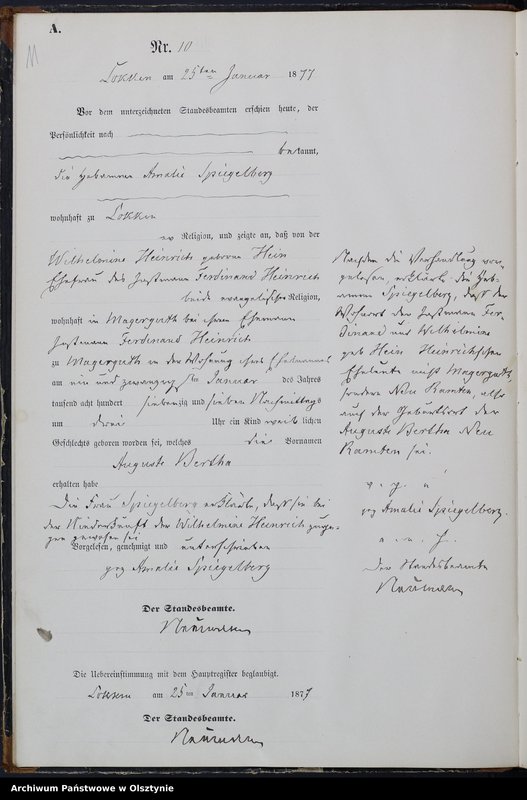 A.
Nr. 10
Lokken am 25ten Januar 1877
Vor dem unterzeichneten Standesbeamten erschien heute, der
Persönlichkeit nach
bekannt,
die Hebamme Amalie Spiegelberg
wohnhaft zu Lokken
ev Religion, und zeigte an, daß von der
Wilhelmine Heinrich geborne Hein
Ehefrau des Instmann Ferdinand Heinrich
beide evangelischer Religion,
wohnhaft in Magerguth bei ihrem Ehemann
Instmann Ferdinand Heinrich
zu Magerguth in der Wohnung ihres Ehemannes
am ein und zwanzigsten Januar des Jahres
tausend acht hundert siebenzig und sieben Nachmittags
um drei Uhr ein Kind weiblichen
Geschlechts geboren worden sei, welches die Vornamen
Auguste Bertha
erhalten habe
Die Frau Spiegelberg erklärte, daß sie bei
der Niederkunft der Wilhelmine Heinrich zuge-
gen gewesen sei
Vorgelesen, genehmigt und unterschrieben
gez Amalie Spiegelberg
Der Standesbeamte.
Naumann
Die Uebereinstimmung mit dem Hauptregister beglaubigt.
Lokken am 25ten Januar 1877
Der Standesbeamte.
Naumann
Nachdem die Verhandlung vor-
gelesen, erklärte die Heb-
amme Spiegelberg, daß der
Wohnort der Instmann Fer-
dinand und Wilhelmine
geb Hein Heinrichschen
Eheleute nicht Magerguth,
sondern Neu Ramten, also
auch der Geburtsort der
Auguste Bertha Neu
Ramten sei.
v. g. u
gez Amalie Spiegelberg.
Der Standesbeamte
Naumann
Archiwum Państwowe w Olsztynie